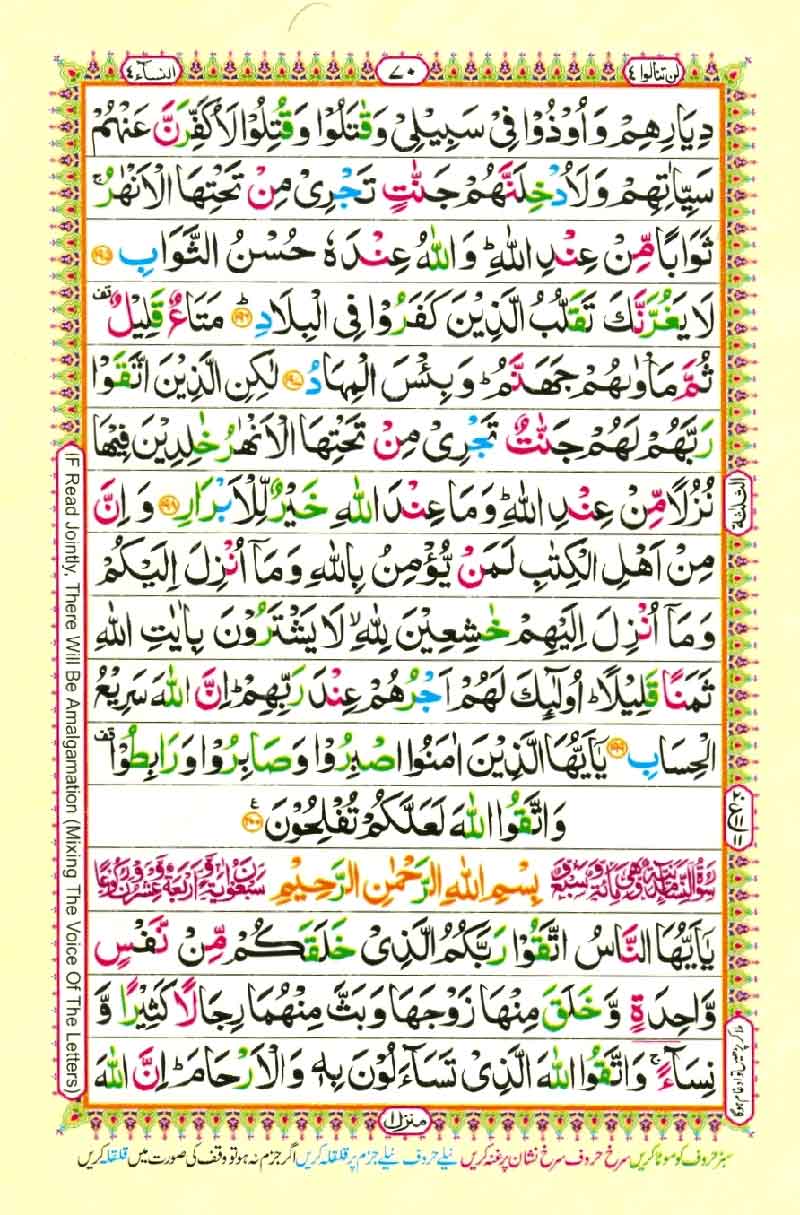 لن تنالوا ٤
٧٠
النساء ٤
دِيَارِهِمْ وَاُوْذُوْا فِىْ سَبِيْلِىْ وَقٰتَلُوْا وَقُتِلُوْا لَاُكَفِّرَنَّ عَنْهُمْ
سَيِّاٰتِهِمْ وَلَاُدْخِلَنَّهُمْ جَنّٰتٍ تَجْرِىْ مِنْ تَحْتِهَا الْاَنْهٰرُ ۚ
ثَوَابًا مِّنْ عِنْدِ اللّٰهِ ؕ وَاللّٰهُ عِنْدَهٗ حُسْنُ الثَّوَابِ ﴿۱۹۵﴾
لَا يَغُرَّنَّكَ تَقَلُّبُ الَّذِيْنَ كَفَرُوْا فِى الْبِلَادِ ؕ ﴿۱۹۶﴾ مَتَاعٌ قَلِيْلٌ قف
ثُمَّ مَاْوٰىهُمْ جَهَنَّمُ ؕ وَبِئْسَ الْمِهَادُ ﴿۱۹۷﴾ لٰكِنِ الَّذِيْنَ اتَّقَوْا
رَبَّهُمْ لَهُمْ جَنّٰتٌ تَجْرِىْ مِنْ تَحْتِهَا الْاَنْهٰرُ خٰلِدِيْنَ فِيْهَا
نُزُلًا مِّنْ عِنْدِ اللّٰهِ ؕ وَمَا عِنْدَ اللّٰهِ خَيْرٌ لِّلْاَبْرَارِ ﴿۱۹۸﴾ وَاِنَّ
مِنْ اَهْلِ الْكِتٰبِ لَمَنْ يُّؤْمِنُ بِاللّٰهِ وَمَاۤ اُنْزِلَ اِلَيْكُمْ
وَمَاۤ اُنْزِلَ اِلَيْهِمْ خٰشِعِيْنَ لِلّٰهِ ۙ لَا يَشْتَرُوْنَ بِاٰيٰتِ اللّٰهِ
ثَمَنًا قَلِيْلًا ؕ اُولٰٓئِكَ لَهُمْ اَجْرُهُمْ عِنْدَ رَبِّهِمْ ؕ اِنَّ اللّٰهَ سَرِيْعُ
الْحِسَابِ ﴿۱۹۹﴾ يٰۤاَيُّهَا الَّذِيْنَ اٰمَنُوا اصْبِرُوْا وَصَابِرُوْا وَرَابِطُوْا قف
وَاتَّقُوا اللّٰهَ لَعَلَّكُمْ تُفْلِحُوْنَ ﴿۲۰۰﴾ ع
بِسْمِ اللّٰهِ الرَّحْمٰنِ الرَّحِيْمِ
يٰۤاَيُّهَا النَّاسُ اتَّقُوْا رَبَّكُمُ الَّذِىْ خَلَقَكُمْ مِّنْ نَّفْسٍ
وَّاحِدَةٍ وَّخَلَقَ مِنْهَا زَوْجَهَا وَبَثَّ مِنْهُمَا رِجَالًا كَثِيْرًا وَّ
نِسَآءً ۚ وَاتَّقُوا اللّٰهَ الَّذِىْ تَسَآءَلُوْنَ بِهٖ وَالْاَرْحَامَ ؕ اِنَّ اللّٰهَ
منزل ١
سبز حروف کو موٹا کریں سرخ حروف سرخ نشان پر غنہ کریں نیلے حروف نیلے جزم پر قلقلہ کریں اگر جزم نہ ہو تو وقف کی صورت میں قلقلہ کریں
الثلثة
ملا کر پڑھیں تو ادغام ہوگا
IF Read Jointly, There Will Be Amalgamation (Mixing The Voice Of The Letters)